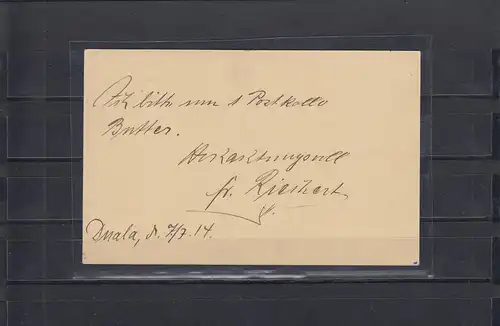 Ich bitte um 1 Postkollo
Butter.
Hochachtungsvoll
fr. Rieckert
Duala, d. 7/7.14.